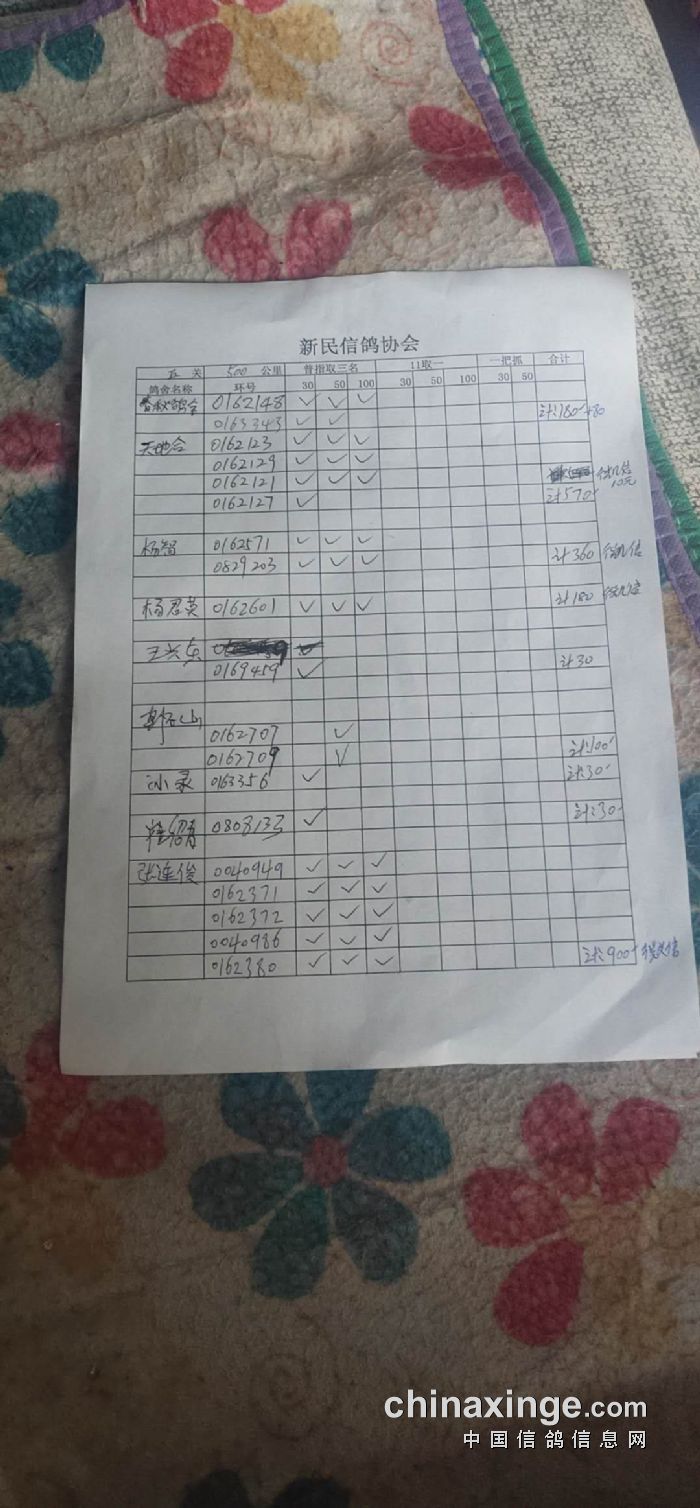 新民信鸽协会
关 500 公里 普指取三名 11取一 一把抓 合计
鸽舍名称 环号 30 50 100 30 50 100 30 50
春秋鸽舍 0162148 ✓ ✓ ✓
0163343 ✓ ✓ 计:180+80
天地合 0162123 ✓ ✓ ✓
0162129 ✓ ✓ ✓
0162121 ✓ ✓ ✓ 10元
0162127 ✓ 计570
杨智 0162571 ✓ ✓ ✓
0829203 ✓ ✓ ✓ 计360
杨君英 0162601 ✓ ✓ ✓ 计180
王兴东
0169459 ✓ 计30
0162707 ✓
0162709 ✓ 计:100
小录 0163356 ✓ 计:30
0808133 ✓ 计:30
张连俊 0040949 ✓ ✓ ✓
0162371 ✓ ✓ ✓
0162372 ✓ ✓ ✓
0040986 ✓ ✓ ✓
0162380 ✓ ✓ ✓ 计:900
chinaxinge.com
中国信鸽信息网